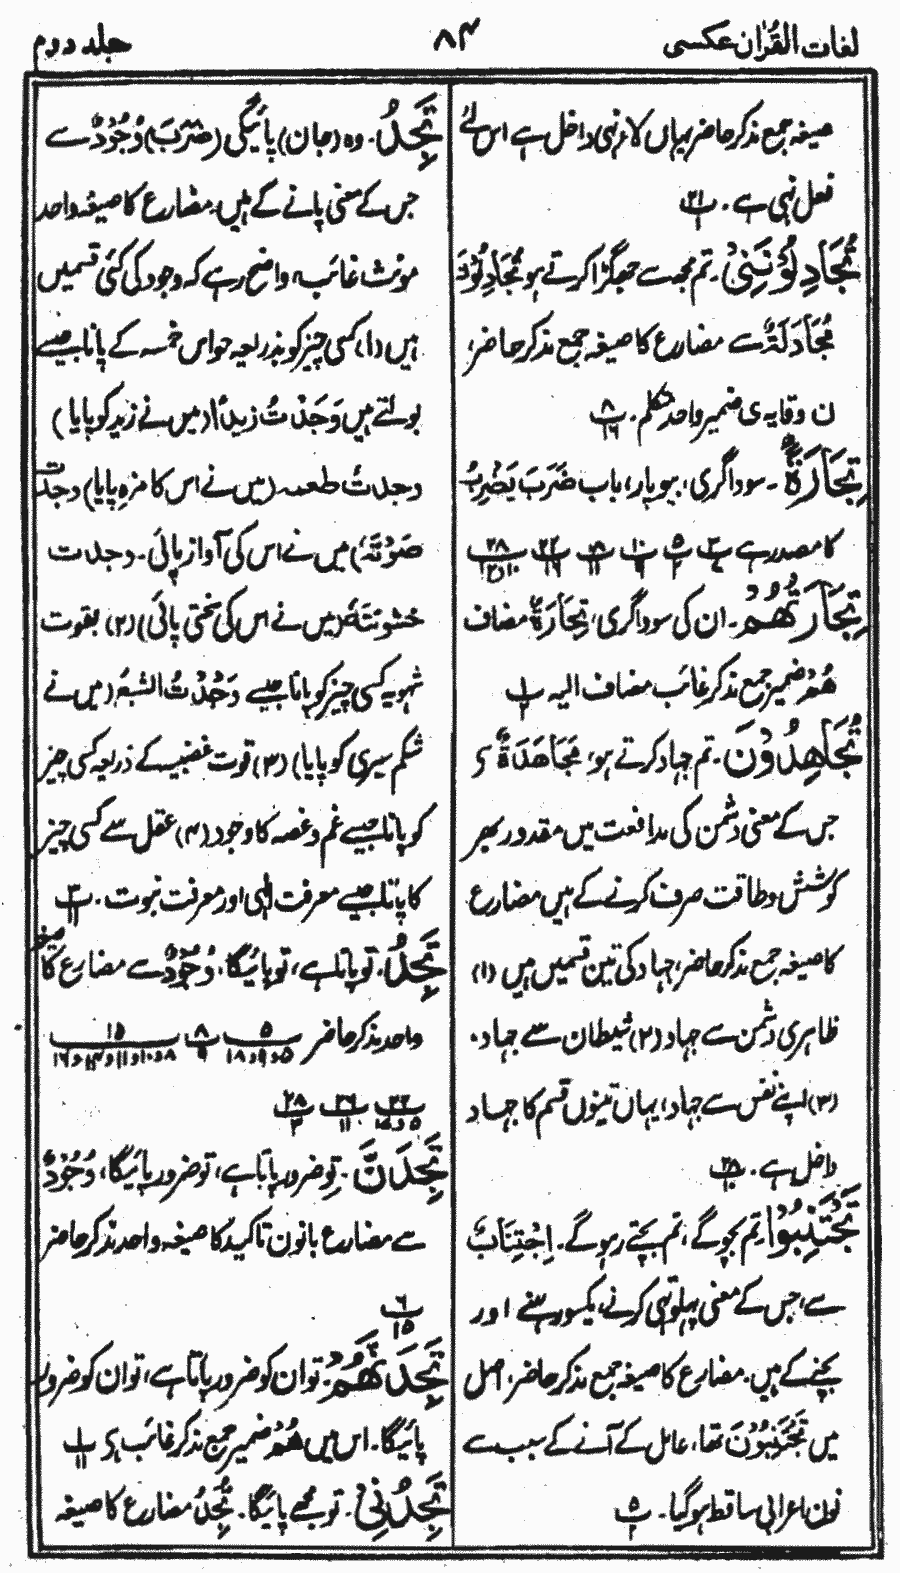 لغات القرآن عکسی
۸۴
جلد دوم
صیغہ جمع مذکر حاضر یہاں لائے نہی داخل ہے اس لئے
فعل نہی ہے۔
تُجَادِلُوْنَنِیْ۔ تم مجھ سے جھگڑا کرتے ہو تُجَادِلُوْنَ
مُجَادَلَۃٌ سے مضارع کا صیغہ جمع مذکر حاضر،
ن وقایہ ی ضمیر واحد متکلم۔ ۸/۱۶
تِجَارَۃٌ۔ سوداگری، بیوپار، باب ضَرَبَ یَضْرِبُ
کا مصدر ہے
تِجَارَتُھُمْ۔ ان کی سوداگری، تِجَارَۃٌ مضاف
ھُمْ ضمیر جمع مذکر غائب مضاف الیہ
تُجَاھِدُوْنَ۔ تم جہاد کرتے ہو، مُجَاھَدَۃٌ
جس کے معنی دشمن کی مدافعت میں مقدور بھر
کوشش و طاقت صرف کرنے کے ہیں مضارع
کا صیغہ جمع مذکر حاضر، جہاد کی تین قسمیں ہیں (۱)
ظاہری دشمن سے جہاد (۲) شیطان سے جہاد۔
(۳) اپنے نفس سے جہاد، یہاں تینوں قسم کا جہاد
داخل ہے۔
تَجْتَنِبُوْا۔ تم بچو گے، تم بچتے رہو گے۔ اِجْتِنَابٌ
سے، جس کے معنی پہلو تہی کرنے، یکسو رہنے اور
بچنے کے ہیں۔ مضارع کا صیغہ جمع مذکر حاضر، اصل
میں تَجْتَنِبُوْنَ تھا، عامل کے آنے کے سبب سے
نون اعرابی ساقط ہو گیا۔ ۵/۲
تَجِدُ۔ وہ (جان) پائیگی (ضَرَبَ) وُجُوْدٌ سے
جس کے معنی پانے کے ہیں، مضارع کا صیغہ واحد
مونث غائب، واضح رہے کہ وجود کی کئی قسمیں
ہیں (۱)، کسی چیز کو بذریعہ حواس خمسہ کے پانا جیسے
بولتے ہیں وَجَدْتُ زیدًا (میں نے زید کو پایا)
وجدتُ طعمہ (میں نے اس کا مزہ پایا) وجدتُ
صَوْتَہٗ) میں نے اس کی آواز پائی۔ وجدت
خشونتَہٗ (میں نے اس کی سختی پائی) (۲) بقوت
شہویہ کسی چیز کو پانا جیسے وَجَدْتُ الشبعَ (میں نے
شکم سیری کو پایا) (۳) قوت غضبیہ کے ذریعہ کسی چیز
کو پانا جیسے غم و غصہ کا وجود (۴) عقل سے کسی چیز
کا پانا جیسے معرفت الٰہی اور معرفت نبوت۔ ۳/۱۱
تَجِدُ۔ تو پاتا ہے، تو پائیگا، وُجُوْدٌ سے مضارع کا صیغہ
واحد مذکر حاضر
تَجِدَنَّ۔ تو ضرور پاتا ہے، تو ضرور پائیگا، وُجُوْدٌ
سے مضارع بانون تاکید کا صیغہ واحد مذکر حاضر
۶/۱۵
تَجِدَنَّھُمْ۔ تو ان کو ضرور پاتا ہے، تو ان کو ضرور
پائیگا۔ اس میں ھُمْ ضمیر جمع مذکر غائب ہے ۱/۱۱
تَجِدُنِیْ۔ تو مجھے پائیگا۔ تَجِدُ مضارع کا صیغہ